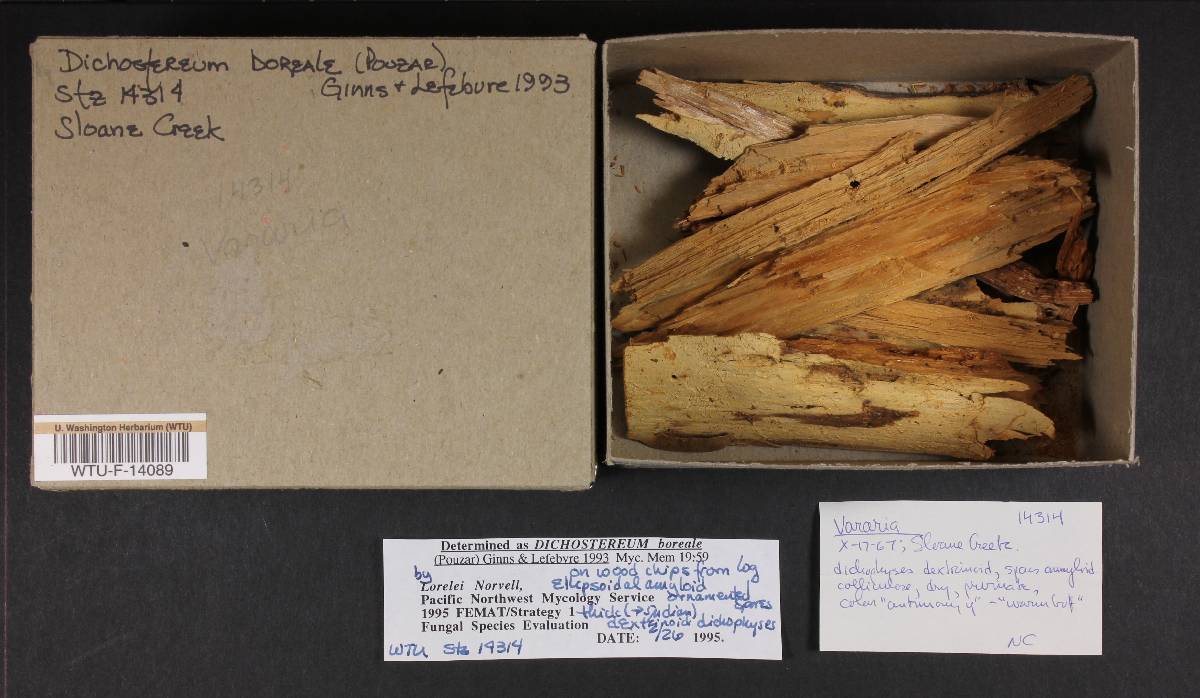 Dichostereum boreale (Pouzar)
Stz 14314 Ginns + Lefebvre 1993
Sloane Creek
14314
Vararia
U. Washington Herbarium (WTU)
WTU-F-14089
Determined as DICHOSTEREUM boreale
(Pouzar) Ginns & Lefebvre 1993 Myc. Mem 19:59
by on wood chips from log
Lorelei Norvell, Ellipsoidal amyloid
Pacific Northwest Mycology Service ornamented
1995 FEMAT/Strategy 1 thick (→ Sudian) spores
Fungal Species Evaluation dextrinoid dichophyses
DATE: 2/26 1995.
WTU Stz 14314
Vararia 14314
X-17-67; Sloane Creek.
dichophyses dextrinoid, spores amyloid
colliculose, dry, pruinose,
color "antimony y" – "warm buf"
NC